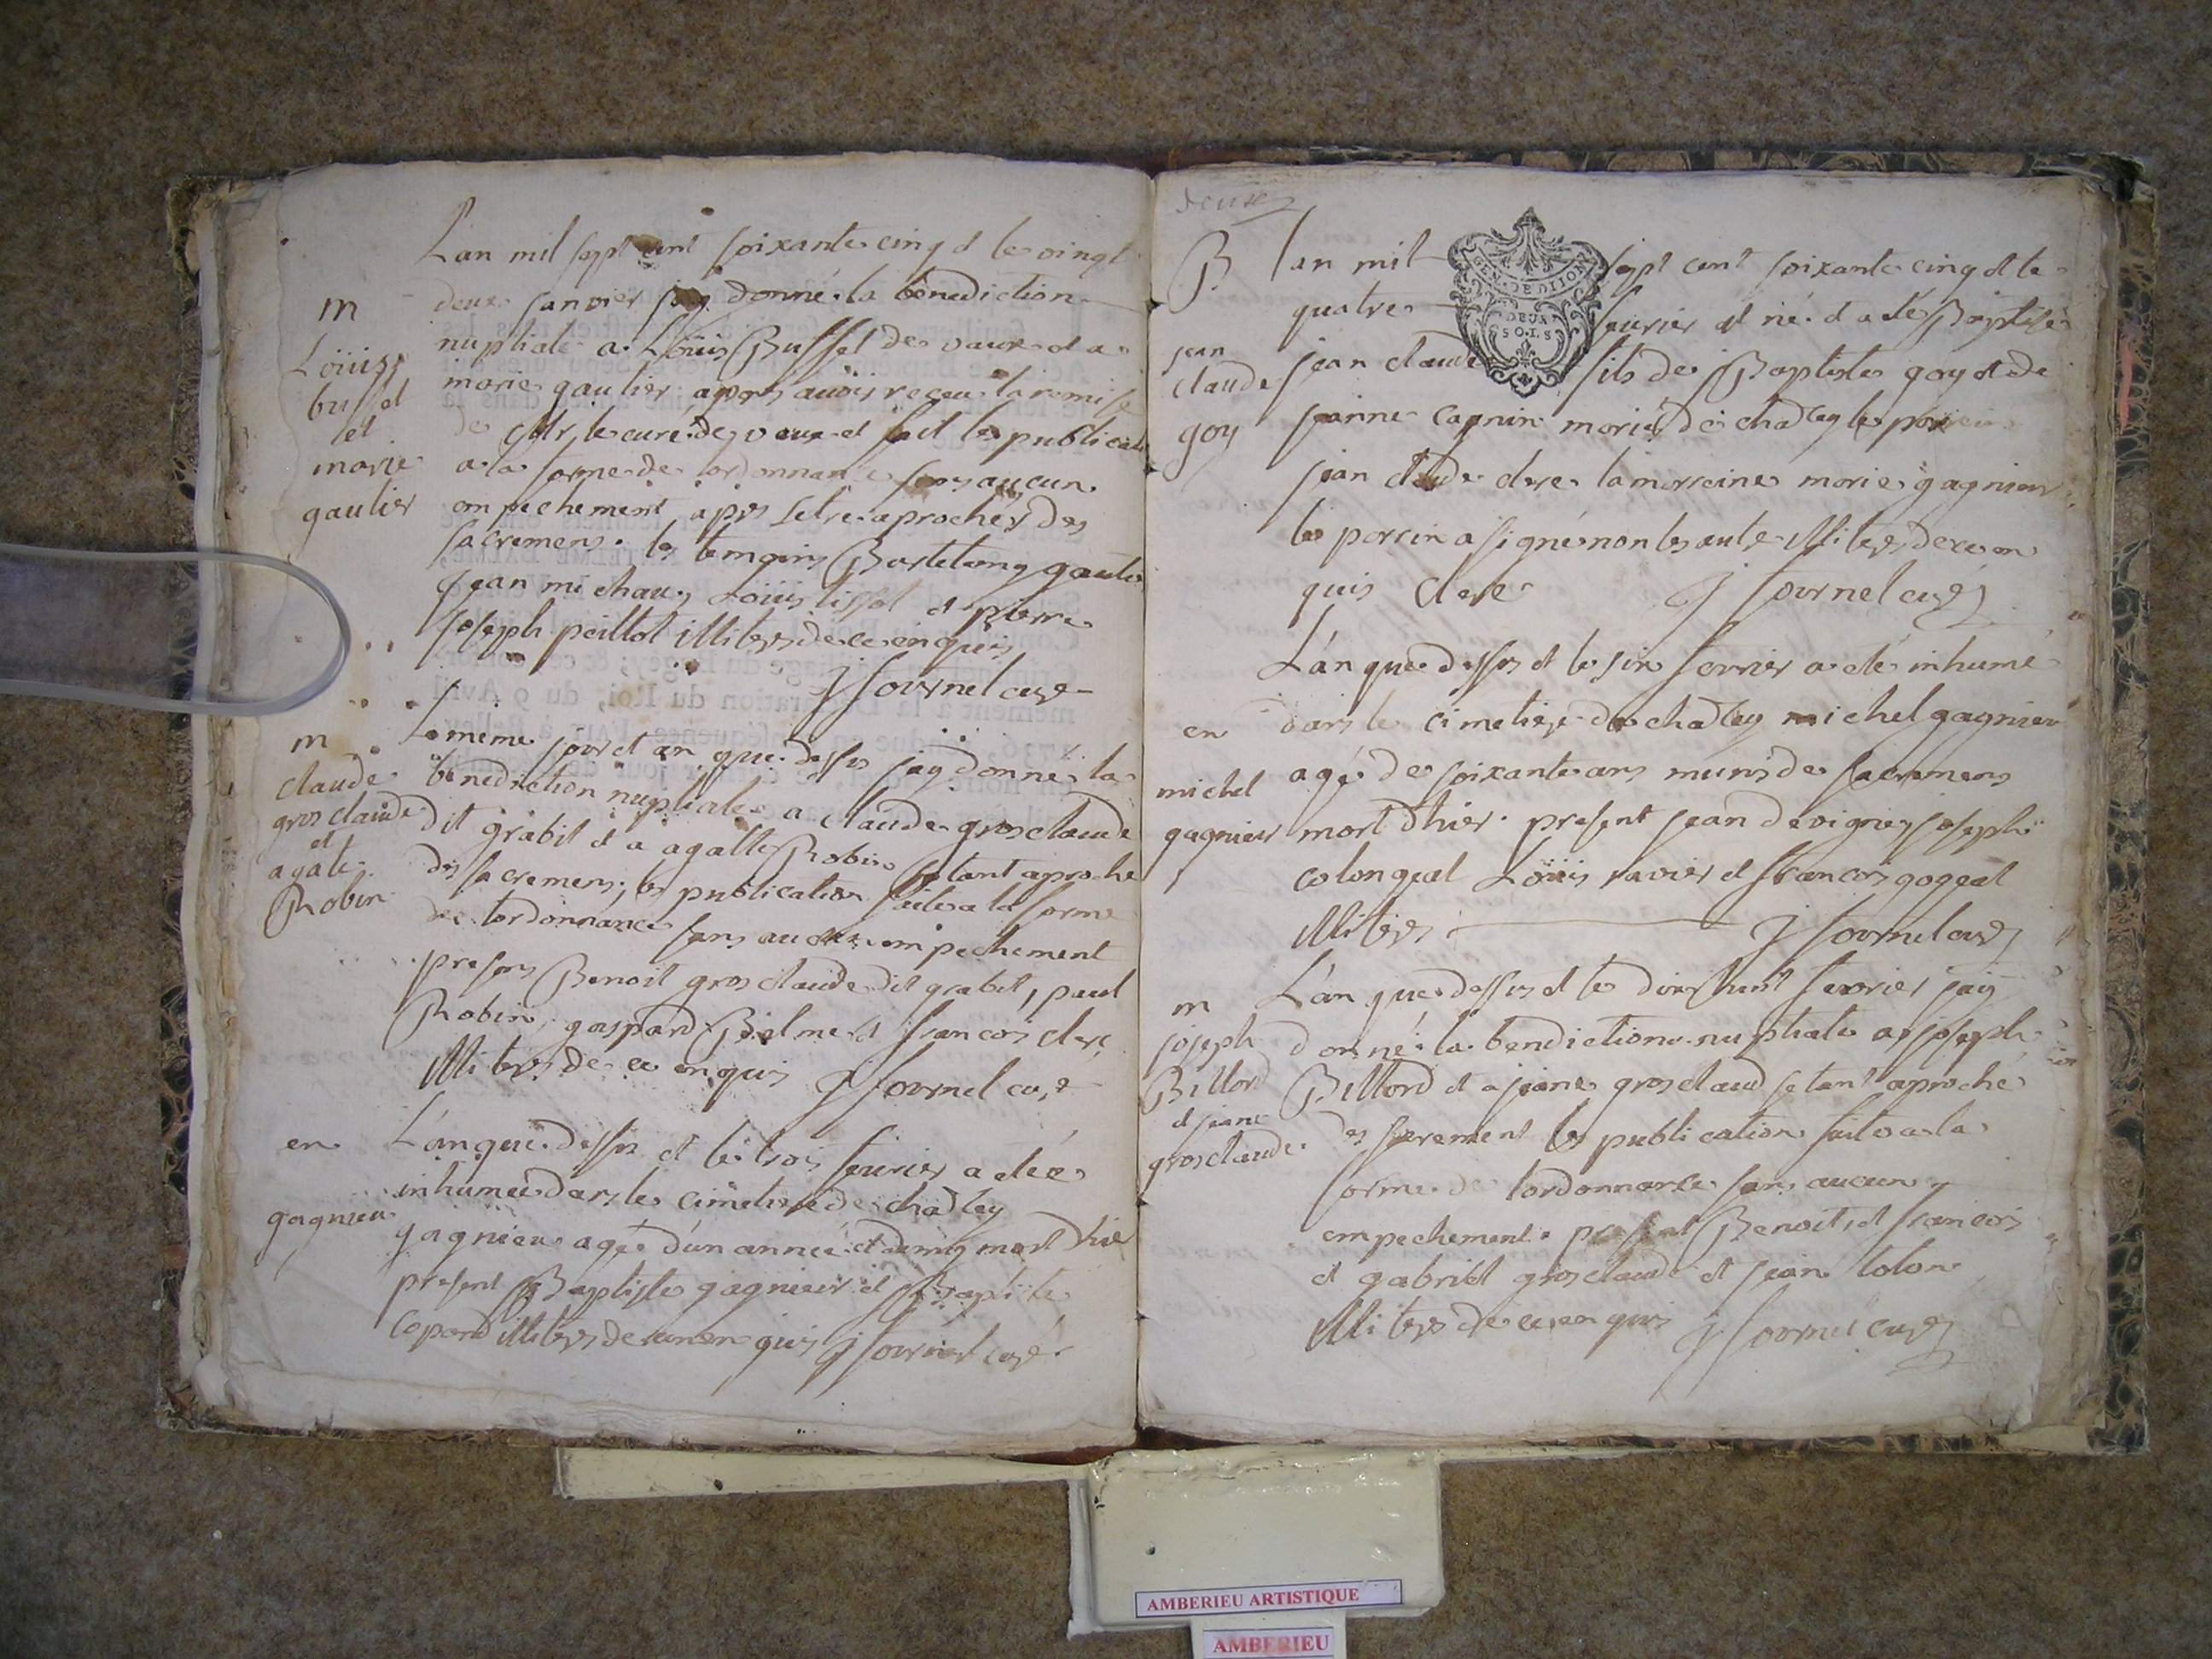 L'an mil sept cent soixante cinq et le vingt
m
deux janvier jay donné la bénédiction
nuptiale a Loüis Buffet de vaux et a
Loüis
buffet
et
marie
gautier
marie gautier apres avoir receu la remise
de Mr le curé de vaux et fait les publicat
a la forme de lordonnance sans aucun
empechement apres setre aprochés des
sacremens. les temoins Bartelemy gautier
jean michaux Loüis tissot et pierre
joseph peillot illiteres de ce enquis
J fournel curé
m
claude
gros claude
et
agate
Robin
Le meme jour et an que dessus jay donné la
benediction nuptiale a claude gros claude
dit grabit et a agatte Robin setant aproche
des sacremens; les publication faites a la forme
de lordonnance sans aucun empechement
presens Benoit gros claude dit grabit, paul
Robin, gaspard et francois clere
illiteres de ce enquis J fournel curé
en
L'an que dessus et le trois feurier a étée
inhumée dans le cimetiere de chadley
gagnieu
gagnieu agée d'un année et demy mort d'hier
present Baptiste gagnieur et Baptiste
illiteres de ce enquis J fournel curé
deux
B
l'an mil sept cent soixante cinq et le
quatre feurier est né et a été Baptisé
jean
claude
goy
jean claude fils de Baptiste goy et de
jeanne mariés de chadley le parrein
jean claude clere la marreine marie gagnieur
le parrein a signé non les autres illiteres de ce en
quis Clere J fournel curé
L'an que dessus et le six fevrier a été inhumé
en
dans le cimetiere de chadley michel gagnieur
michel
gagnieur
agé de soixante ans munis de sacremens
mort d'hier. present jean devigney joseph
Loüis ravier et francois gogeat
illiteres J fournel curé
m
joseph
Billord
et jeane
grosclaude
L'an que dessus et le dix huit fevrier jay
donné la bendiction nuptiale a joseph
Billord et a jeane grosclaud setant aproché
des sacrement les publication faites a la
forme de lordonnance sans aucun
empechement. present Benoit et francois
et gabriel grosclaude et jean tolon
illiteres de ce enquis J fournel curé
GEN. DE DIJON
DEUX
SOLS
AMBERIEU ARTISTIQUE
AMBERIEU